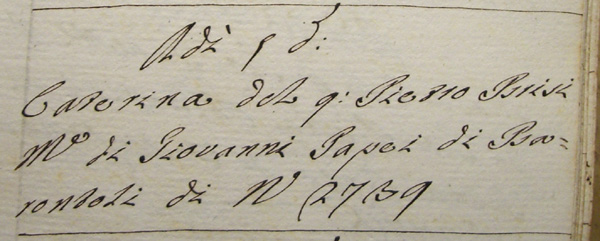 Adì 5 d:
Caterina del q: Pietro Brisi
M.e di Giovanni Papei di Ba=
rontoli di N 2739